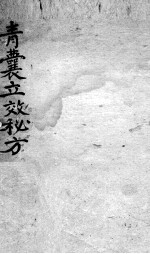 青囊立效秘方